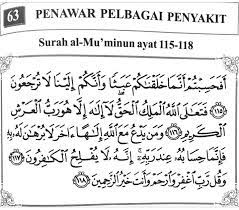 63
PENAWAR PELBAGAI PENYAKIT
Surah al-Mu'minun ayat 115-118
أَفَحَسِبْتُمْ أَنَّمَا خَلَقْنَاكُمْ عَبَثًا وَأَنَّكُمْ إِلَيْنَا لَا تُرْجَعُونَ
﴿١١٥﴾ فَتَعَالَى اللَّهُ الْمَلِكُ الْحَقُّ لَا إِلَٰهَ إِلَّا هُوَ رَبُّ الْعَرْشِ
الْكَرِيمِ ﴿١١٦﴾ وَمَن يَدْعُ مَعَ اللَّهِ إِلَٰهًا آخَرَ لَا بُرْهَانَ لَهُ بِهِ
فَإِنَّمَا حِسَابُهُ عِندَ رَبِّهِ إِنَّهُ لَا يُفْلِحُ الْكَافِرُونَ ﴿١١٧﴾
وَقُل رَّبِّ اغْفِرْ وَارْحَمْ وَأَنتَ خَيْرُ الرَّاحِمِينَ ﴿١١٨﴾